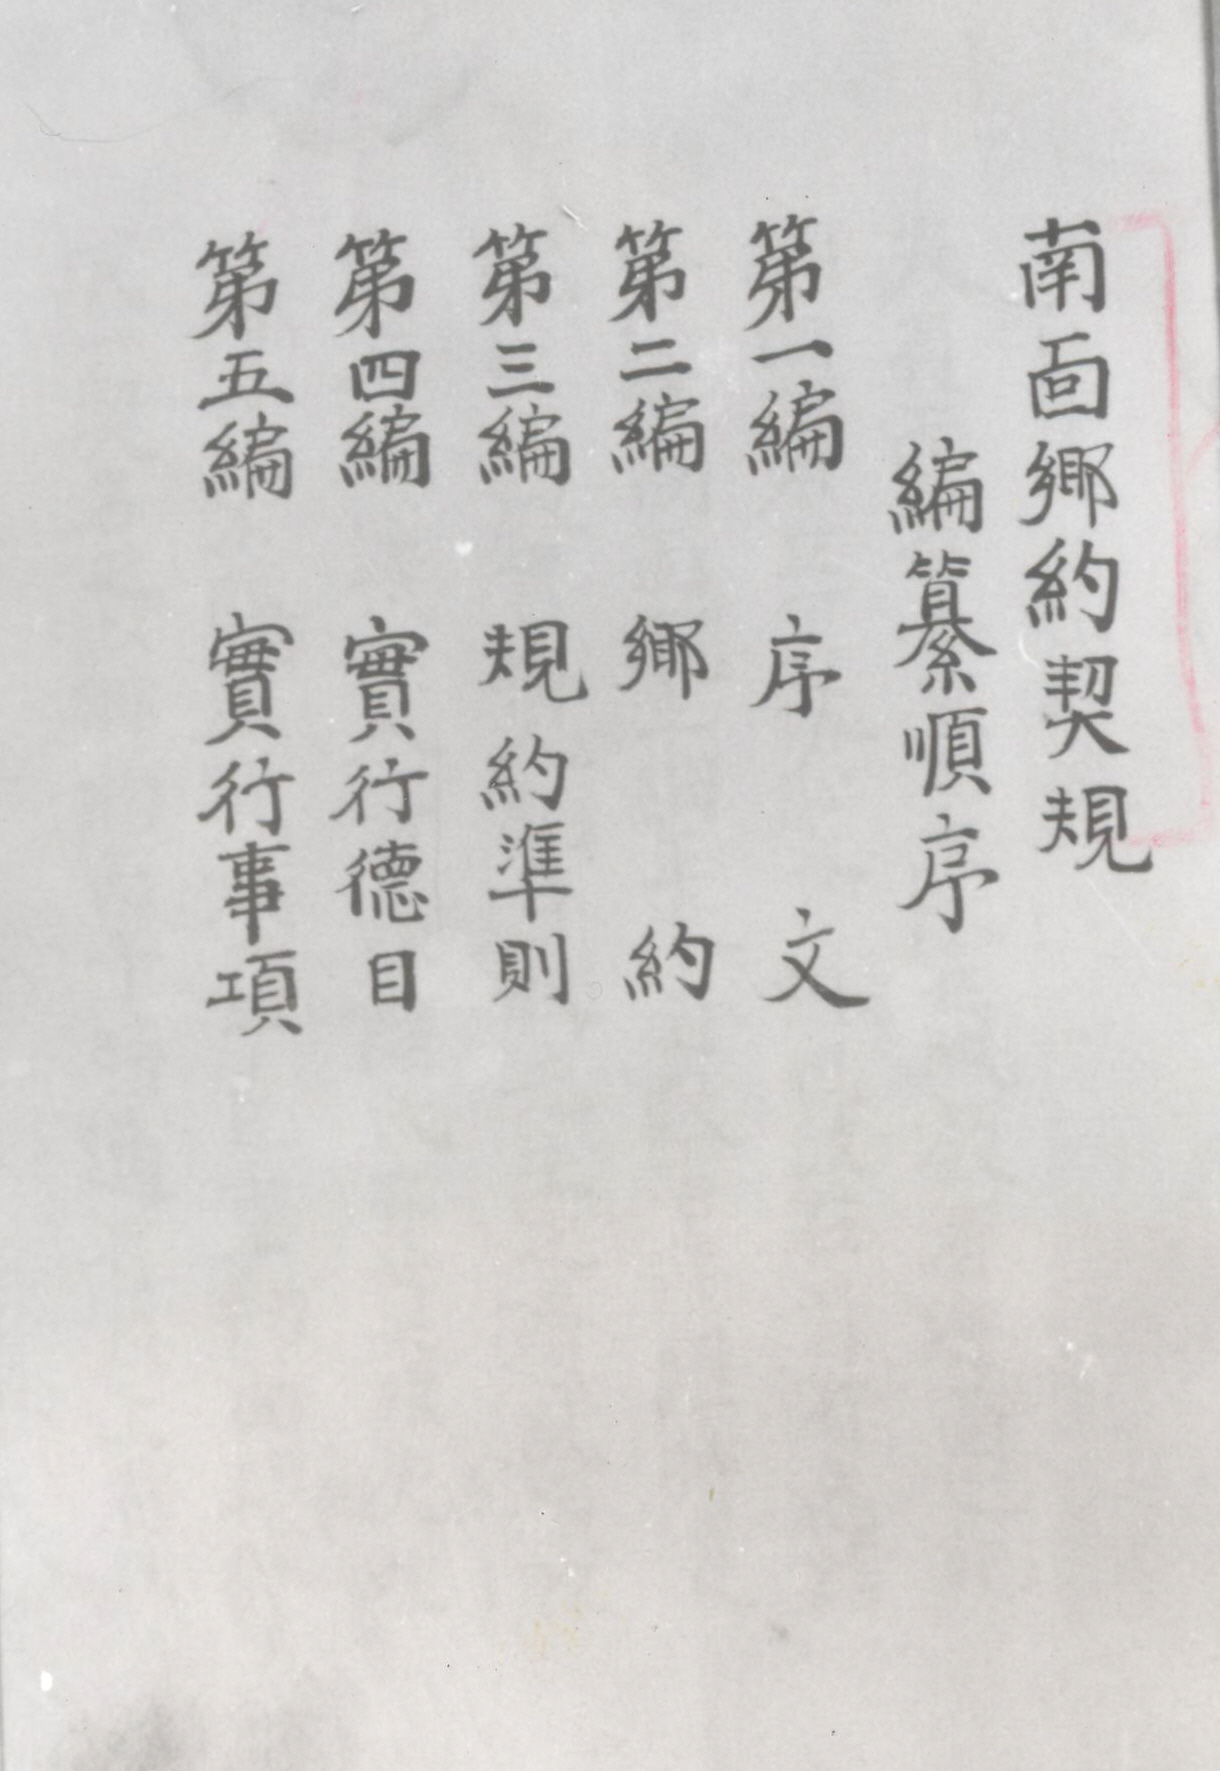 南面鄕約契規
編纂順序
第一編 序文
第二編 鄕約
第三編 規約準則
第四編 實行德目
第五編 實行事項